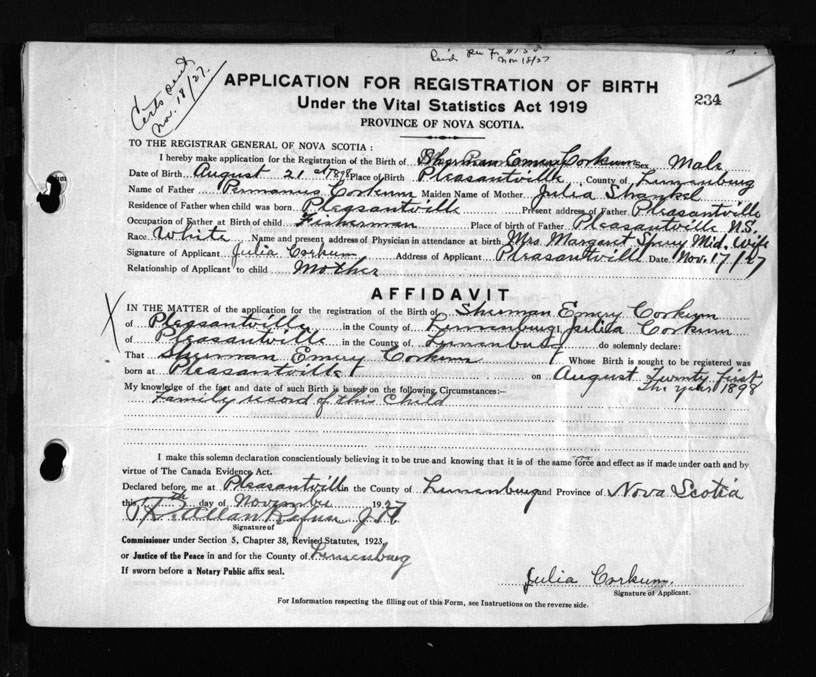 Rec'd Nov 18/27
Certs sent
Nov. 18/27.
APPLICATION FOR REGISTRATION OF BIRTH
234
Under the Vital Statistics Act 1919
PROVINCE OF NOVA SCOTIA.
TO THE REGISTRAR GENERAL OF NOVA SCOTIA :
I hereby make application for the Registration of the Birth of Sherman Emery Corkum Sex Male
Date of Birth August 21st 1898 Place of Birth Pleasantville County of Lunenburg
Name of Father Corkum Maiden Name of Mother Julia Shankel
Residence of Father when child was born Pleasantville Present address of Father Pleasantville
Occupation of Father at Birth of child Fisherman Place of birth of Father Pleasantville N.S.
Race White Name and present address of Physician in attendance at birth Mrs. Margaret Mid. Wife
Signature of Applicant Julia Corkum Address of Applicant Pleasantville Date Nov. 17/27
Relationship of Applicant to child Mother
AFFIDAVIT
IN THE MATTER of the application for the registration of the Birth of Sherman Emery Corkum
of Pleasantville in the County of Lunenburg I, Julia Corkum
of Pleasantville in the County of Lunenburg do solemnly declare:
That Sherman Emery Corkum Whose Birth is sought to be registered was
born at Pleasantville on August Twenty first
The year 1898
My knowledge of the fact and date of such Birth is based on the following Circumstances:—
Family record of this Child
I make this solemn declaration conscientiously believing it to be true and knowing that it is of the same force and effect as if made under oath and by
virtue of The Canada Evidence Act.
Declared before me at Pleasantville in the County of Lunenburg and Province of Nova Scotia
this 17th day of November 1927
Allan J.P.
Signature of
Commissioner under Section 5, Chapter 38, Revised Statutes, 1923,
or Justice of the Peace in and for the County of Lunenburg
If sworn before a Notary Public affix seal.
Julia Corkum.
Signature of Applicant.
For Information respecting the filling out of this Form, see Instructions on the reverse side.